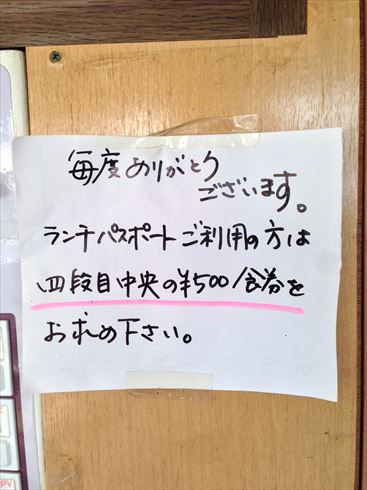 毎度ありがとう
ございます。
ランチパスポートご利用の方は
四段目中央の¥500食券を
お求め下さい。